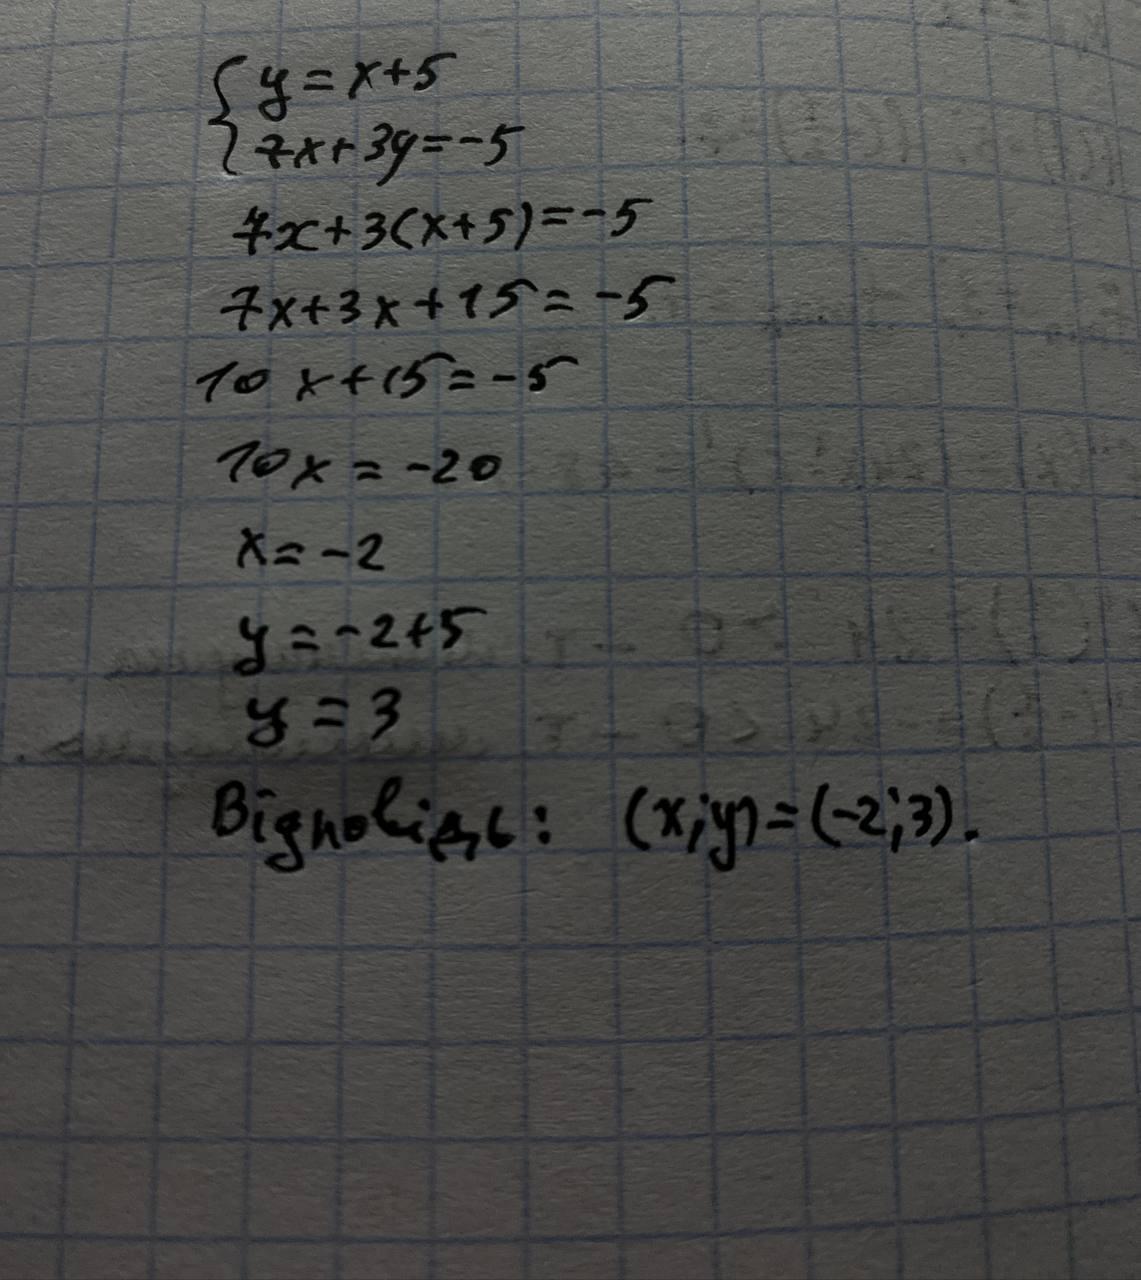 { y = x+5
7x+3y=-5
7x+3(x+5)=-5
7x+3x+15=-5
10x+15=-5
10x=-20
x=-2
y=-2+5
y=3
Відповідь: (x;y)=(-2;3).